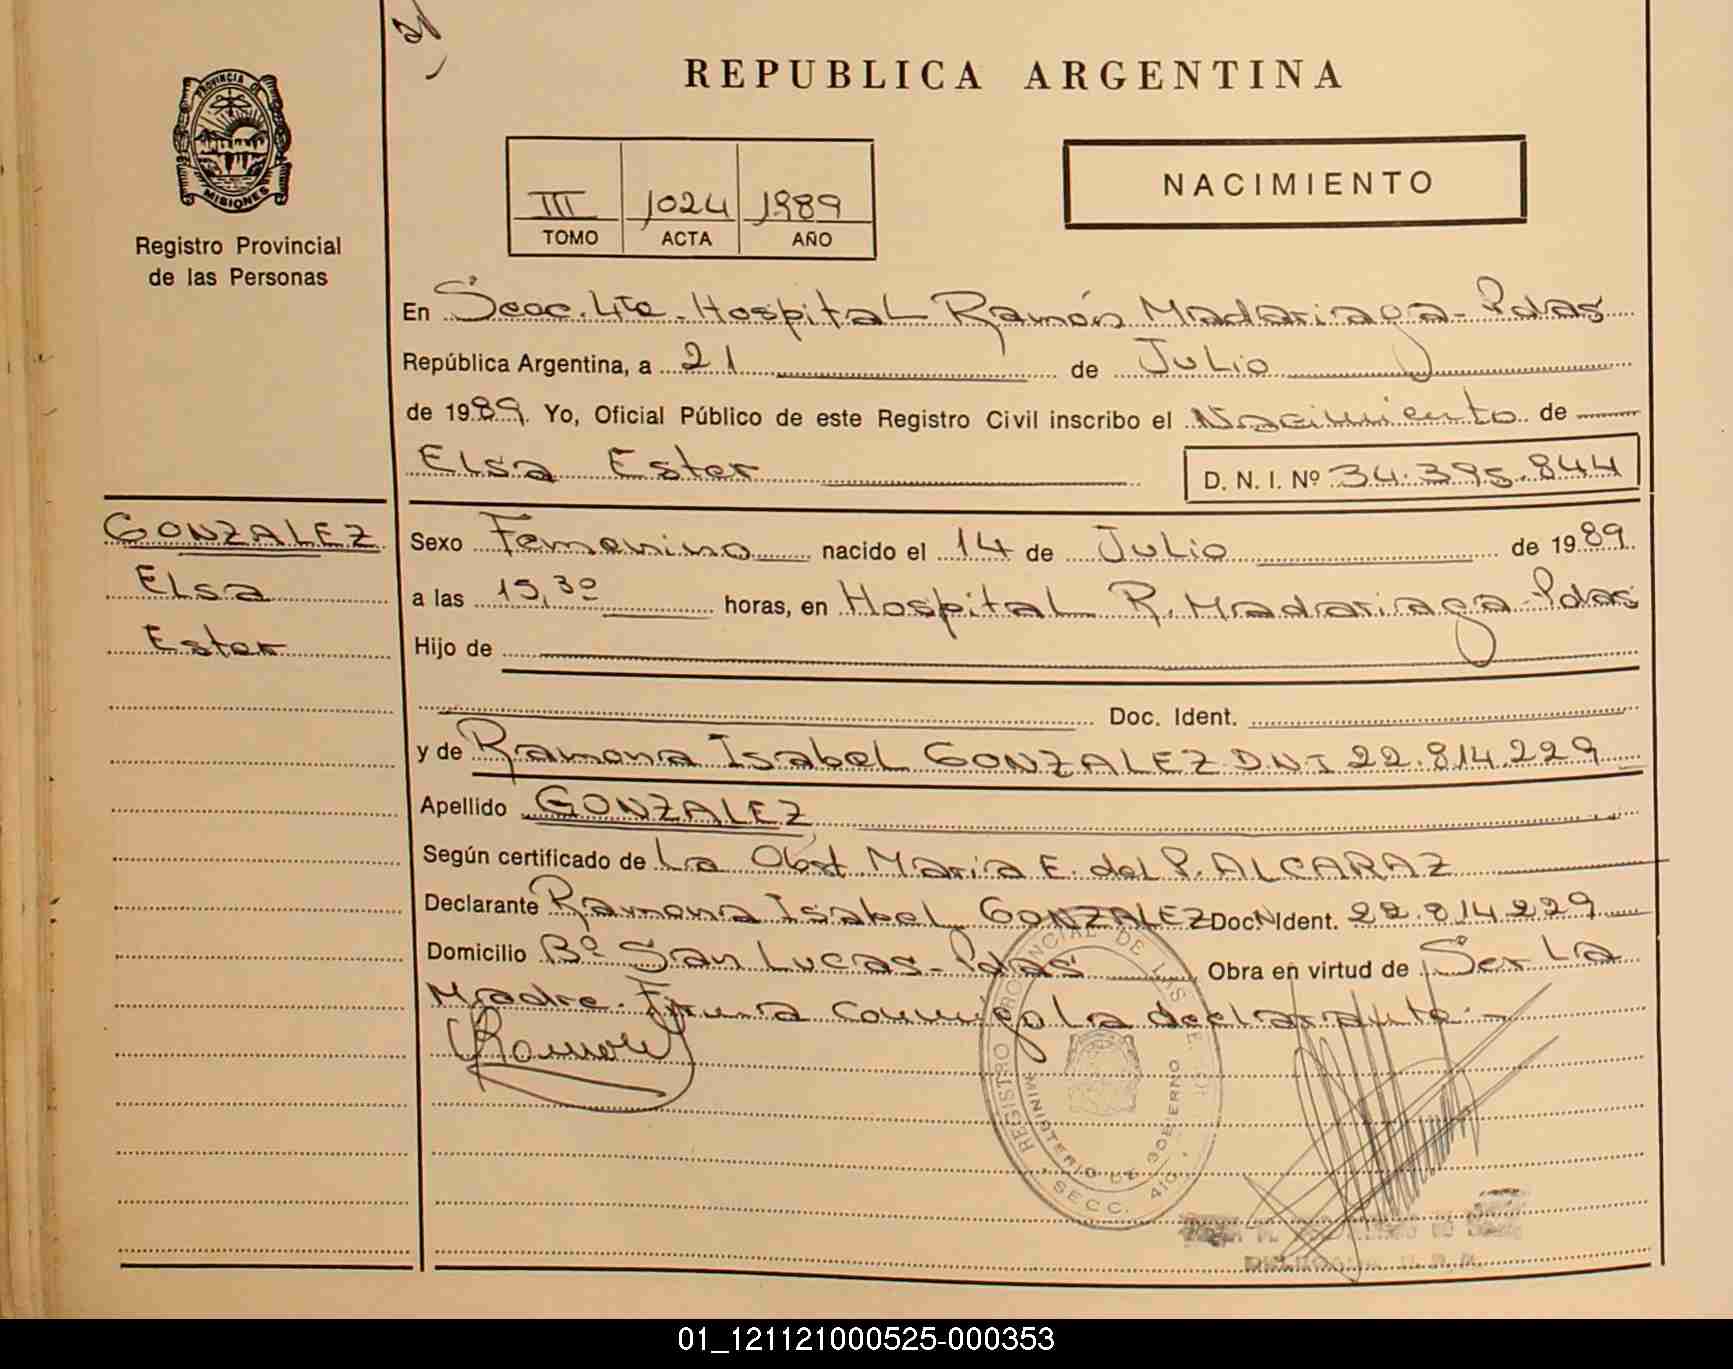 REPUBLICA ARGENTINA
PROVINCIA DE
MISIONES
Registro Provincial
de las Personas
III 1024 1989
TOMO ACTA AÑO
NACIMIENTO
En Secc. 4ta - Hospital Ramón Madariaga - Pdas
República Argentina, a 21 de Julio
de 1989. Yo, Oficial Público de este Registro Civil inscribo el Nacimiento de
Elsa Ester D. N. I. Nº 34.395.844
GONZALEZ
Elsa
Ester
Sexo Femenino nacido el 14 de Julio de 1989
a las 15,30 horas, en Hospital R. Madariaga - Pdas
Hijo de
Doc. Ident.
y de Ramona Isabel GONZALEZ DNI 22.814.229
Apellido GONZALEZ
Según certificado de La Obst María E. del P. ALCARAZ
Declarante Ramona Isabel GONZALEZ Doc. Ident. 22.814.229
Domicilio Bº San Lucas - Pdas Obra en virtud de Ser La
Madre. Firma conmigo La declarante. -
Ramona
REGISTRO PROVINCIAL DE LAS
MINISTERIO DE GOBIERNO
SECC. 4ta.
01_121121000525-000353